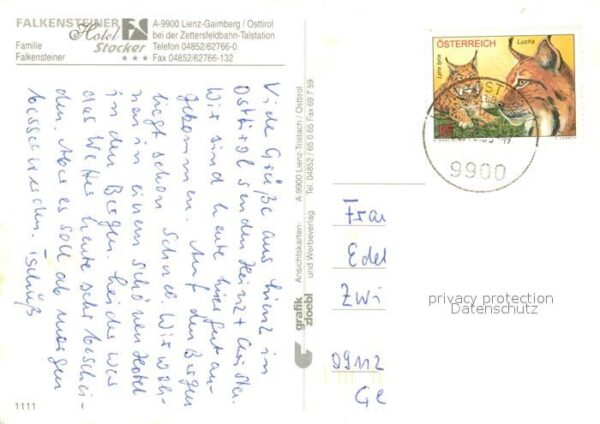 FALKENSTEINER
Hotel FS
Stocker
★★★
Familie
Falkensteiner
A-9900 Lienz-Gaimberg / Osttirol
bei der Zettersfeldbahn-Talstation
Telefon 04852/62766-0
Fax 04852/62766-132
Viele Grüße aus Lienz in
Osttirol senden Heinz + Christa.
Wir sind heute hier gut an-
gekommen. Auf den Bergen
liegt schon Schnee. Wir woh-
nen in einem schönen Hotel
in den Bergen. Leider war
das Wetter heute sehr beschei-
den. Aber es soll ab morgen
besser werden. Tschüß
1111
grafik
zloebl
Ansichtskarten-
und Werbeverlag
A-9900 Lienz-Tristach / Osttirol
Tel. 04852 / 65 0 65 Fax 69 7 59
ÖSTERREICH
Luchs
Lynx lynx
9900
Frau
Edel
Zwi
09112
Ge
privacy protection
Datenschutz